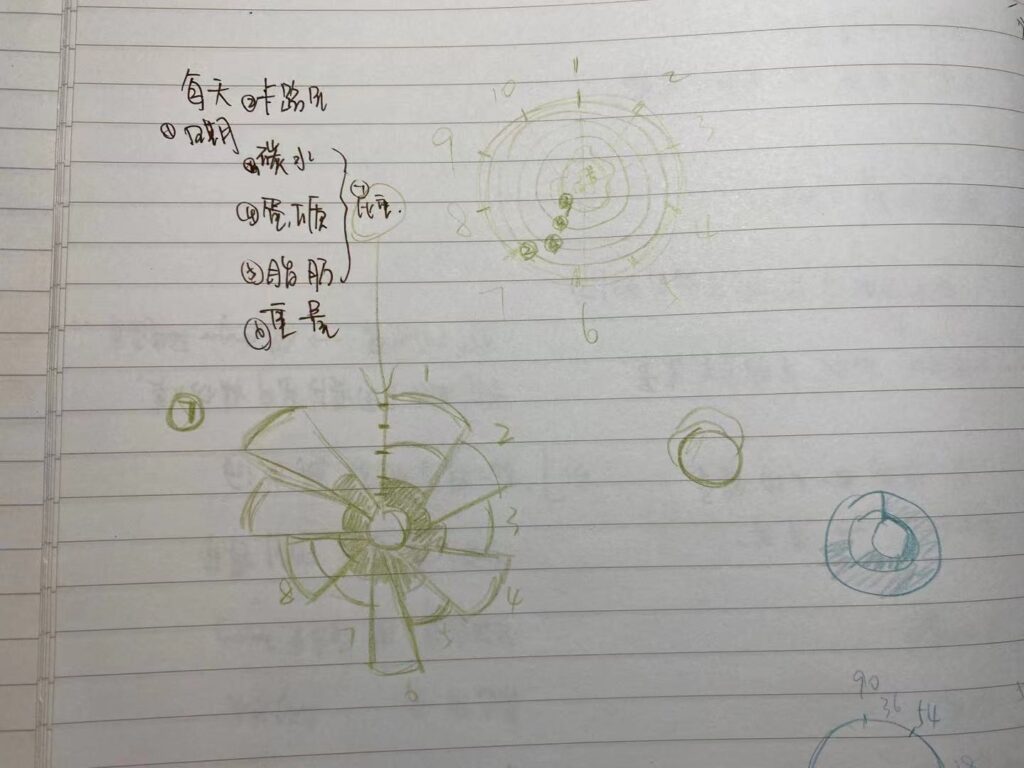 每天 ②卡路里
① 日期
③碳水
④蛋白质
⑤脂肪
⑥重量
⑦
比重.
1
2
3
4
5
6
7
8
9
10
② 
⑦
1
2
3
4
5
6
7
8
90
36
54
18